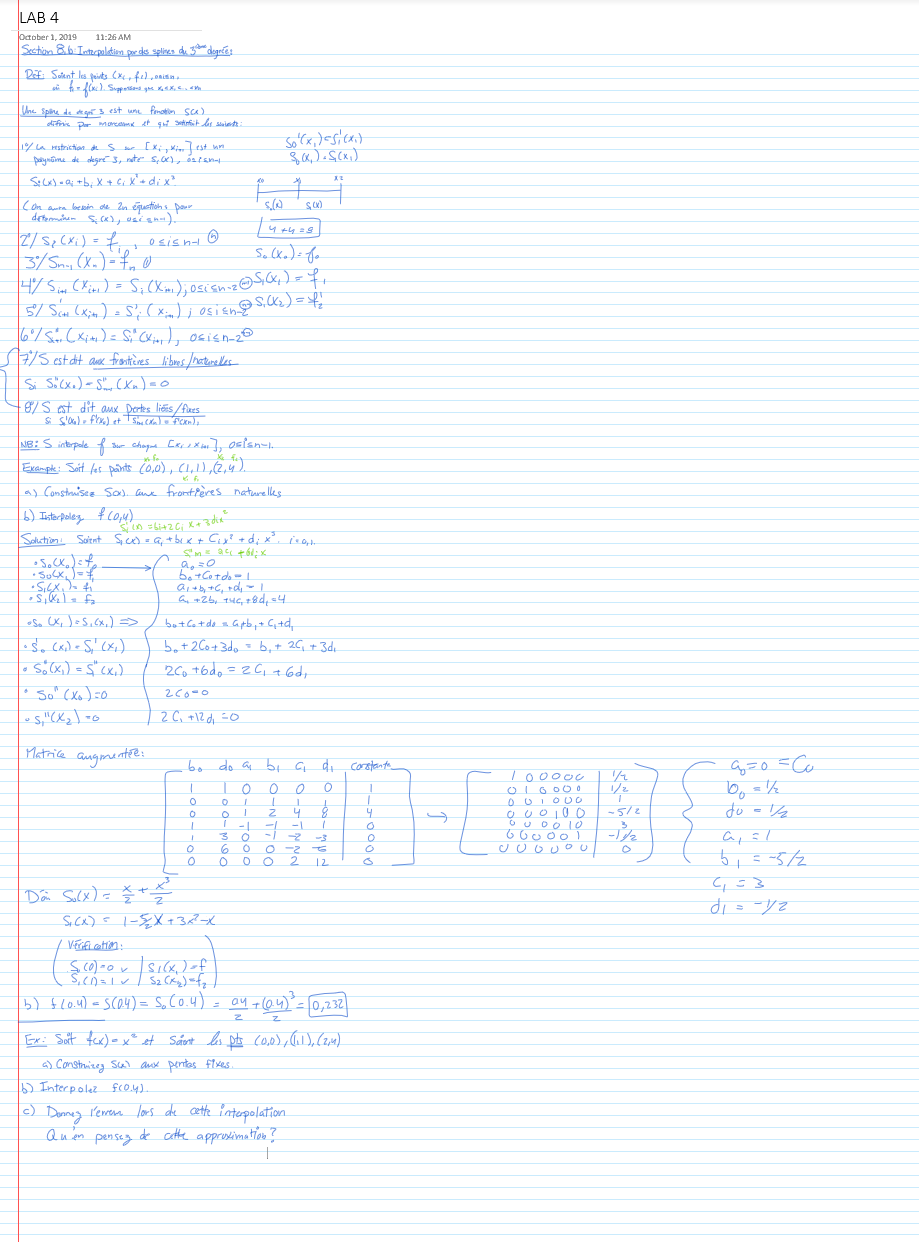 LAB 4
October 1, 2019 11:26 AM
Section 8.6: Interpolation par des splines du 3ième degrés
Déf: Soient les points (xi, fi), 0≤i≤n,
où fi = f(xi). Supposons que x0<x1<...<xn
Une spline de degré 3 est une fonction S(x)
définie par morceaux et qui satisfait les suivants:
1°/ La restriction de S sur [xi, xi+1] est un
polynôme de degré 3, noté Si(x), 0≤i≤n-1
Si(x) = ai + bi x + ci x² + di x³
(on aura besoin de 2n équations pour
déterminer Si(x), 0≤i≤n-1).
S0'(x1) = S1'(x1)
S0(x1) = S1(x1)
x0 x1 x2
S0(x) S1(x)
4 + 4 = 8
S0(x0) = f0
S1(x1) = f1
S1(x2) = f2
2°/ Si(xi) = fi, 0≤i≤n-1 (n)
3°/ Sn-1(xn) = fn (1)
4°/ Si+1(xi+1) = Si(xi+1), 0≤i≤n-2 (n-1)
5°/ S'i+1(xi+1) = S'i(xi+1), 0≤i≤n-2 (n-1)
6°/ S''i+1(xi+1) = S''i(xi+1), 0≤i≤n-2 (n-1)
7°/ S est dit aux frontières libres/naturelles
Si S0''(x0) = S''n-1(xn) = 0
8°/ S est dit aux pertes liées/fixes
Si S'0(x0) = f'(x0) et S'n-1(xn) = f'(xn),
NB: S interpole f sur chaque [xi, xi+1], 0≤i≤n-1.
x0 f0 x2 f2
Example: Soit les points (0,0), (1,1), (2,4)
x1 f1
a) Construisez S(x) aux frontières naturelles
b) Interpolez f(0,4)
Si'(x) = bi + 2ci x + 3di x²
Solution: Soient Si(x) = ai + bi x + Ci x² + di x³. i=0,1.
Si''(x) = 2ci + 6di x
• S0(x0) = f0 a0 = 0
• S0(x1) = f1 b0 + c0 + d0 = 1
• S1(x1) = f1 a1 + b1 + c1 + d1 = 1
• S1(x2) = f2 a1 + 2b1 + 4c1 + 8d1 = 4
• S0(x1) = S1(x1) => b0 + c0 + d0 = a1 + b1 + c1 + d1
• S'0(x1) = S1'(x1) b0 + 2C0 + 3d0 = b1 + 2C1 + 3d1
• S0''(x1) = S1''(x1) 2C0 + 6d0 = 2C1 + 6d1
• S0''(x0) = 0 2C0 = 0
• S1''(x2) = 0 2C1 + 12d1 = 0
Matrice augmentée:
b0 d0 a1 b1 c1 d1 constante
1 1 0 0 0 0 1
0 0 1 1 1 1 1
0 0 1 2 4 8 4
1 1 -1 -1 -1 1 0
1 3 0 -1 -2 -3 0
0 6 0 0 -2 -6 0
0 0 0 0 2 12 0
1 0 0 0 0 0 1/2
0 1 0 0 0 0 1/2
0 0 1 0 0 0 1
0 0 0 1 0 0 -5/2
0 0 0 0 1 0 3
0 0 0 0 0 1 -1/2
0 0 0 0 0 0 0
a0 = 0 = C0
b0 = 1/2
d0 = 1/2
a1 = 1
b1 = -5/2
c1 = 3
d1 = -1/2
D'où S0(x) = x/2 + x³/2
S1(x) = 1 - 5/2 x + 3x² - x
Vérification:
S0(0) = 0 ✓ S1(x1) = f
S1(1) = 1 ✓ S2(x2) = f2
b) f(0.4) = S(0.4) = S0(0.4) = 0.4/2 + (0.4)³/2 = 0,232
Ex: Soit f(x) = x² et soient les pts (0,0), (1,1), (2,4)
a) Construirez S(x) aux pertes fixes.
b) Interpolez f(0.4).
c) Donnez l'erreur lors de cette interpolation
Qu'en pensez de cette approximation?